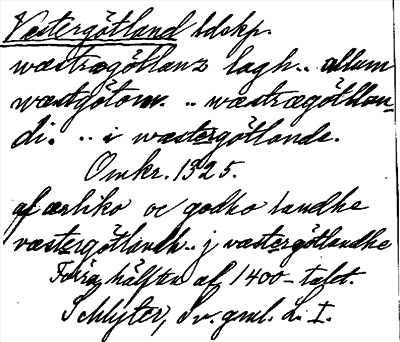 Västergötland ldskp.
wæstrægötlanz lagh.. allum
wæstgötom. .. wæstrægötllan-
di. .. i wæstergötlande.
Omkr. 1325.
af ærliko oc godho landhe
væstergötlandh.. j væstergötlandhe
Förra hälften af 1400-talet.
Schlyter, Sv. gml. L. I.